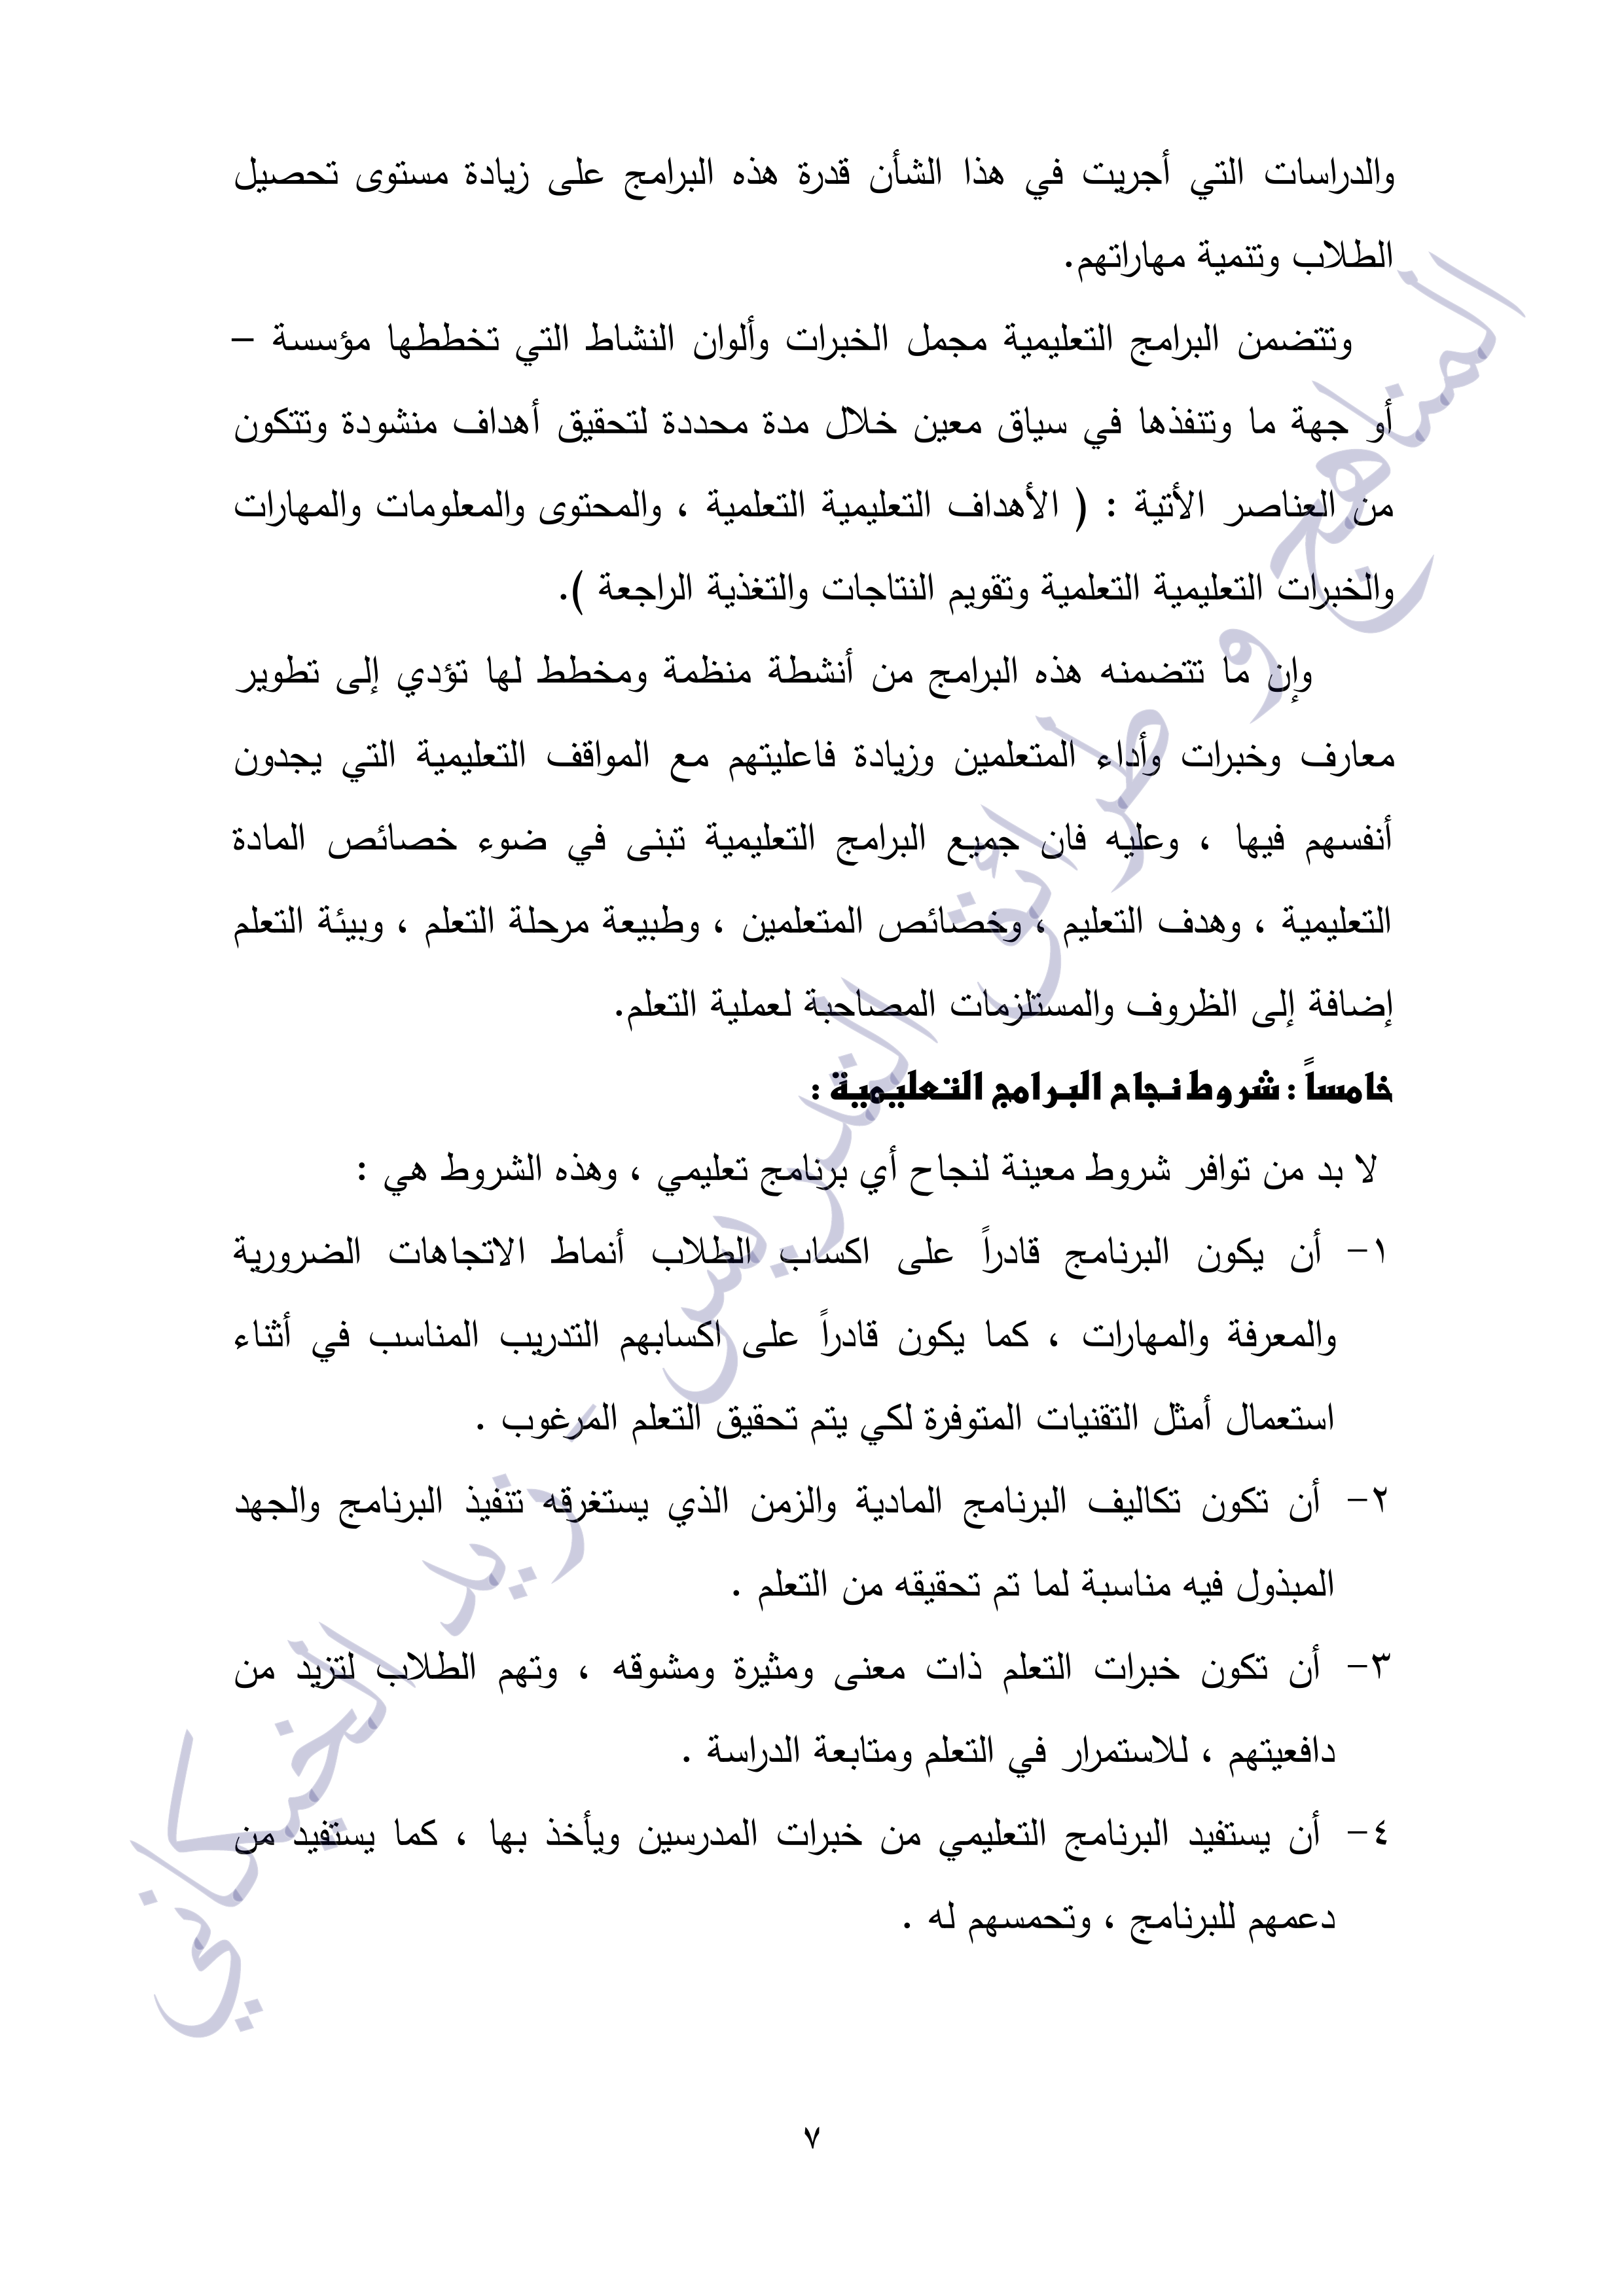 والدراسات التي أجريت في هذا الشأن قدرة هذه البرامج على زيادة مستوى تحصيل
الطلاب وتنمية مهاراتهم.
وتتضمن البرامج التعليمية مجمل الخبرات وألوان النشاط التي تخططها مؤسسة –
أو جهة ما وتنفذها في سياق معين خلال مدة محددة لتحقيق أهداف منشودة وتتكون
من العناصر الأتية : ( الأهداف التعليمية التعلمية ، والمحتوى والمعلومات والمهارات
والخبرات التعليمية التعلمية وتقويم النتاجات والتغذية الراجعة ).
وإن ما تتضمنه هذه البرامج من أنشطة منظمة ومخطط لها تؤدي إلى تطوير
معارف وخبرات وأداء المتعلمين وزيادة فاعليتهم مع المواقف التعليمية التي يجدون
أنفسهم فيها ، وعليه فان جميع البرامج التعليمية تبنى في ضوء خصائص المادة
التعليمية ، وهدف التعليم ، وخصائص المتعلمين ، وطبيعة مرحلة التعلم ، وبيئة التعلم
إضافة إلى الظروف والمستلزمات المصاحبة لعملية التعلم.
خامساً : شروط نجاح البرامج التعليمية :
لا بد من توافر شروط معينة لنجاح أي برنامج تعليمي ، وهذه الشروط هي :
١- أن يكون البرنامج قادراً على اكساب الطلاب أنماط الاتجاهات الضرورية
والمعرفة والمهارات ، كما يكون قادراً على اكسابهم التدريب المناسب في أثناء
استعمال أمثل التقنيات المتوفرة لكي يتم تحقيق التعلم المرغوب .
٢- أن تكون تكاليف البرنامج المادية والزمن الذي يستغرقه تنفيذ البرنامج والجهد
المبذول فيه مناسبة لما تم تحقيقه من التعلم .
٣- أن تكون خبرات التعلم ذات معنى ومثيرة ومشوقه ، وتهم الطلاب لتزيد من
دافعيتهم ، للاستمرار في التعلم ومتابعة الدراسة .
٤- أن يستفيد البرنامج التعليمي من خبرات المدرسين ويأخذ بها ، كما يستفيد من
دعمهم للبرنامج ، وتحمسهم له .
٧
المناهج و طرائق التدريس - زيد الخيكاني